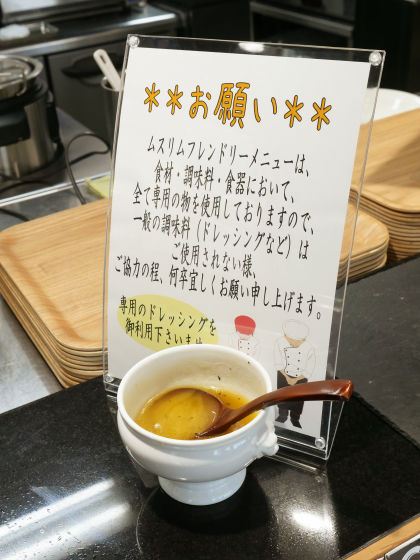 **お願い**
ムスリムフレンドリーメニューは、
食材・調味料・食器において、
全て専用の物を使用しておりますので、
一般の調味料（ドレッシングなど）は
ご使用されない様、
ご協力の程、何卒宜しくお願い申し上げます。
専用のドレッシングを
御利用下さいませ